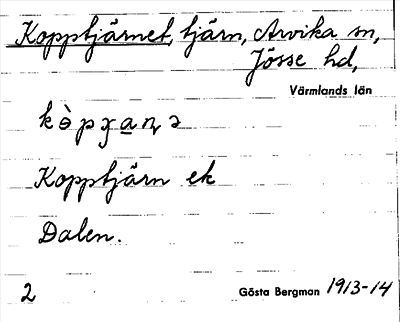 Kopptjärnet, tjärn, Arvika sn,
Jösse hd,
Värmlands län
Kopptjärn ek
Dalen.
2 Gösta Bergman 1913-14